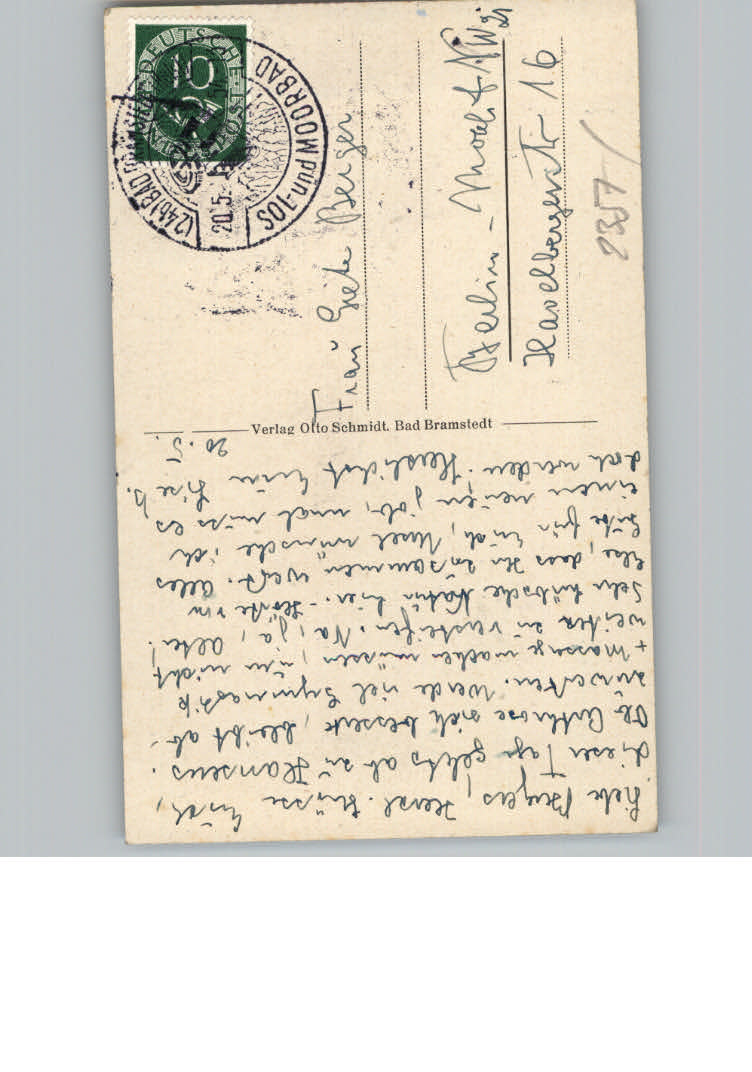 DEUTSCHE
10
POST
(24b) BAD BRAMSTEDT
SOL- und MOORBAD
20.5.
Frau Grete Berger
Berlin - Moabit NW 21
Havelbergerstr 16
2357/
Verlag Otto Schmidt. Bad Bramstedt
20. 5.
Liebe Bergers, Herzl. Grüsse Euch,
dieser Tage gehts ab zu Hansens.
Ob Arthrose sich bessert, bleibt ab-
zuwarten. Werde viel Gymnastik
+ Massage machen müssen, um nicht
weiter zu versteifen. Na, ja, Alter!
Sehr hübsche Natur hier. - Hörte von
Else, dass Ihr zusammen wart. Alles
Gute für Euch, Ursel wünsche ich
einen neuen job, mal muss es
doch werden. Herzlichst Eure Lise B.